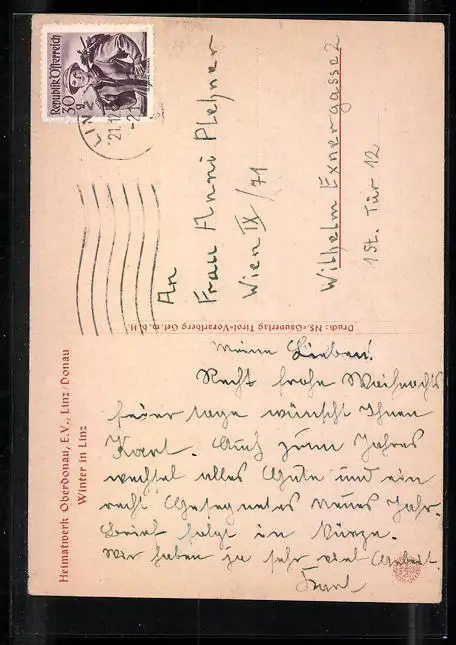 Heimatwerk Oberdonau, E.V., Linz/Donau
Winter in Linz
Republik Österreich
30
LINZ
21.12
An
Frau Anni Plehner
Wien IX/71
Wilhelm Exnergasse 2
1 St. Tür 12
Druck: NS.-Gauverlag Tirol-Vorarlberg Grl. m. b. H.
Meine Lieben!
Recht frohe Weihnachts
feier tage wünscht Ihnen
Karl. Auch zum Jahres
wechsel alles Gute und ein
recht Gesegnetes Neues Jahr.
Brief folgt in Kürze.
Wir haben ja sehr viel Arbeit.
Karl